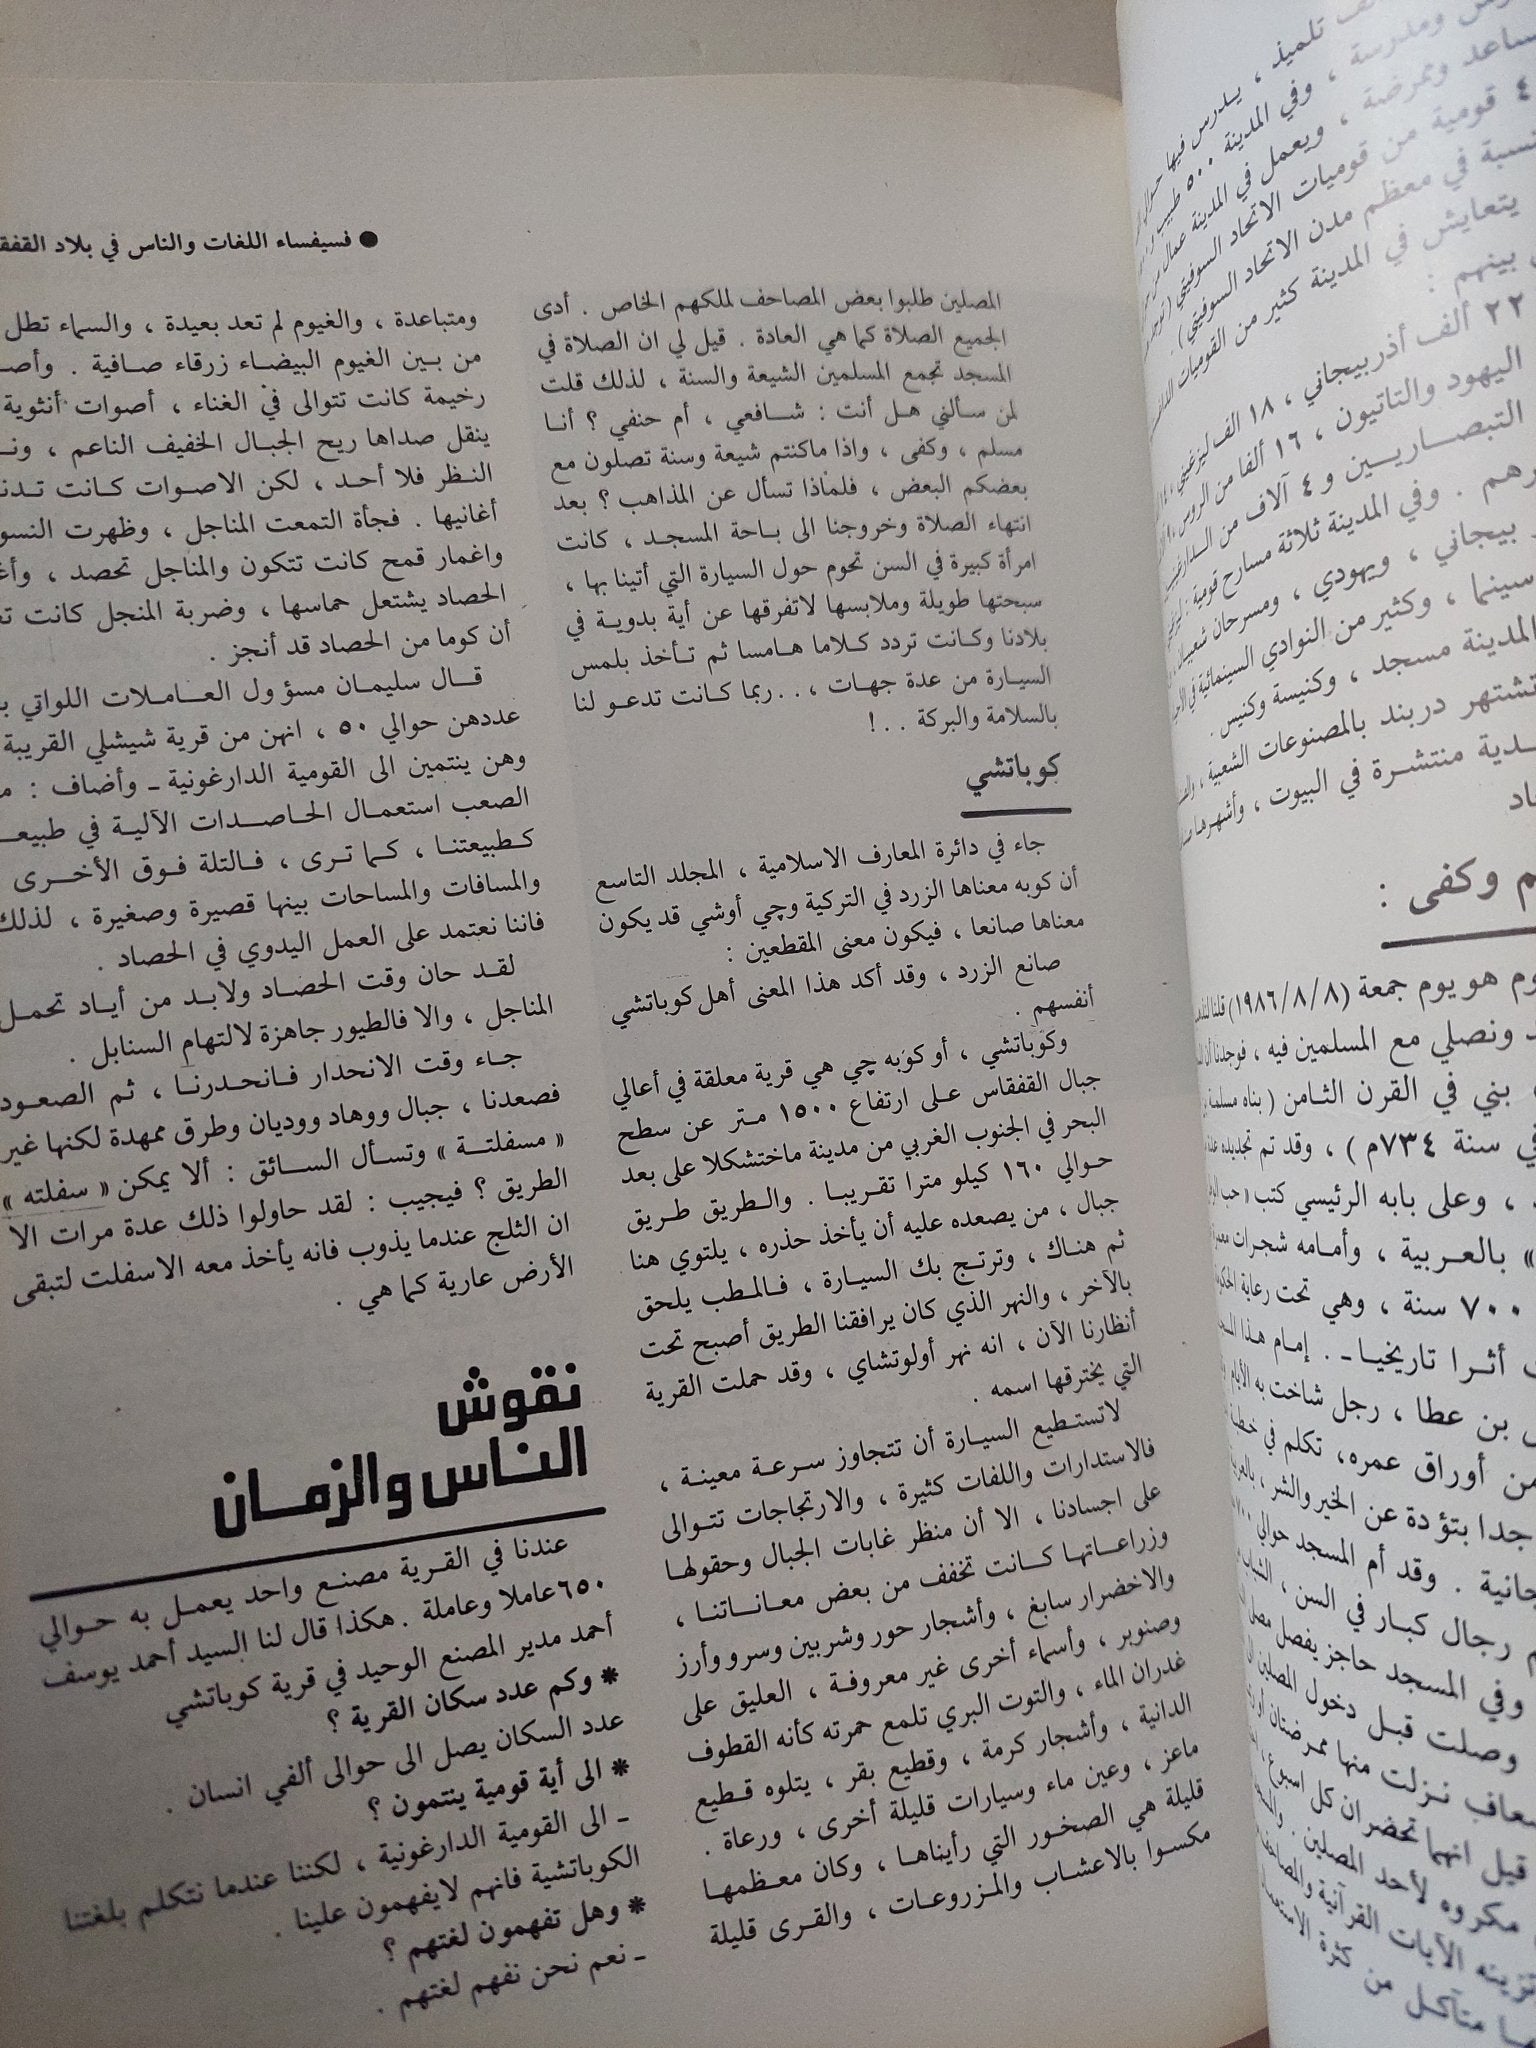 ● فسيفساء اللغات والناس في بلاد
المصلين طلبوا بعض المصاحف لملكهم الخاص . أدى
الجميع الصلاة كما هي العادة . قيل لي ان الصلاة في
المسجد تجمع المسلمين الشيعة والسنة ، لذلك قلت
لمن سألني هل أنت : شافعي ، أم حنفي ؟ أنا
مسلم ، وكفى ، واذا ماكنتم شيعة وسنة تصلون مع
بعضكم البعض ، فلماذا تسأل عن المذاهب ؟ بعد
انتهاء الصلاة وخروجنا الى باحة المسجد ، كانت
امرأة كبيرة في السن تحوم حول السيارة التي أتينا بها ،
سبحتها طويلة وملابسها لاتفرقها عن أية بدوية في
بلادنا وكانت تردد كلاما هامسا ثم تأخذ بلمس
السيارة من عدة جهات ، . . ربما كانت تدعو لنا
بالسلامة والبركة . . !
كوباتشي
جاء في دائرة المعارف الاسلامية ، المجلد التاسع
أن كوبه معناها الزرد في التركية وچي أوشي قد يكون
معناها صانعا ، فيكون معنى المقطعين :
صانع الزرد ، وقد أكد هذا المعنى أهل كوباتشي
أنفسهم .
وكوباتشي ، أو كوبه چي هي قرية معلقة في أعالي
جبال القفقاس على ارتفاع ١٥٠٠ متر عن سطح
البحر في الجنوب الغربي من مدينة ماختشكلا على بعد
حوالي ١٦٠ كيلو مترا تقريبا . والطريق طريق
جبال ، من يصعده عليه أن يأخذ حذره ، يلتوي هنا
ثم هناك ، وترتج بك السيارة ، فالمطب يلحق
بالآخر ، والنهر الذي كان يرافقنا الطريق أصبح تحت
أنظارنا الآن ، انه نهر أولوتشاي ، وقد حملت القرية
التي يخترقها اسمه .
لاتستطيع السيارة أن تتجاوز سرعة معينة ،
فالاستدارات واللفات كثيرة ، والارتجاجات تتوالى
على اجسادنا ، الا أن منظر غابات الجبال وحقولها
وزراعاتها كانت تخفف من بعض معاناتنا ،
والاخضرار سابغ ، وأشجار حور وشربين وسرو وأرز
وصنوبر ، وأسماء أخرى غير معروفة ، العليق على
غدران الماء ، والتوت البري تلمع حمرته كأنه القطوف
الدانية ، وأشجار كرمة ، وقطيع بقر ، يتلوه قطيع
ماعز ، وعين ماء وسيارات قليلة أخرى ، ورعاة .
قليلة هي الصخور التي رأيناها ، وكان معظمها
مكسوا بالاعشاب والمزروعات ، والقرى قليلة
ومتباعدة ، والغيوم لم تعد بعيدة ، والسماء تطل
من بين الغيوم البيضاء زرقاء صافية .
رخيمة كانت تتوالى في الغناء ، أصوات أنثوية
ينقل صداها ريح الجبال الخفيف الناعم ،
النظر فلا أحد ، لكن الاصوات كانت
أغانيها . فجأة التمعت المناجل ، وظهرت
واغمار قمح كانت تتكون والمناجل تحصد ،
الحصاد يشتعل حماسها ، وضربة المنجل كانت
أن كوما من الحصاد قد أنجز .
قال سليمان مسؤول العاملات اللواتي
عددهن حوالي ٥٠ ، انهن من قرية شيشلي القريبة
وهن ينتمين الى القومية الدارغونية ـ وأضاف :
الصعب استعمال الحاصدات الآلية في
كطبيعتنا ، كما ترى ، فالتلة فوق الأخرى
والمسافات والمساحات بينها قصيرة وصغيرة ، لذلك
فاننا نعتمد على العمل اليدوي في الحصاد .
لقد حان وقت الحصاد ولابد من أياد تحمل
المناجل ، والا فالطيور جاهزة لالتهام السنابل .
جاء وقت الانحدار فانحدرنا ، ثم الصعود
فصعدنا ، جبال ووهاد ووديان وطرق ممهدة لكنها غير
« مسفلتة » وتسأل السائق : ألا يمكن « سفلته »
الطريق ؟ فيجيب : لقد حاولوا ذلك عدة مرات الا
ان الثلج عندما يذوب فانه يأخذ معه الاسفلت لتبقى
الأرض عارية كما هي .
نقوش
الناس والزمان
عندنا في القرية مصنع واحد يعمل به حوالي
٦٥٠ عاملا وعاملة . هكذا قال لنا السيد أحمد يوسف
أحمد مدير المصنع الوحيد في قرية كوباتشي
* وكم عدد سكان القرية ؟
عدد السكان يصل الى حوالى ألفي انسان .
* الى أية قومية ينتمون ؟
ـ الى القومية الدارغونية ، لكننا عندما نتكلم بلغتنا
الكوباتشية فانهم لايفهمون علينا .
* وهل تفهمون لغتهم ؟
ـ نعم نحن نفهم لغتهم .
تلميذ ، يدرس فيها
ومدرسة ، وفي المدينة ٥٠٠ طبيب
وممرضة ، ويعمل في المدينة عمال
قومية من قوميات الاتحاد السوفيتي
في معظم مدن الاتحاد السوفيتي ) .
يتعايش في المدينة كثير من القوميات
بينهم :
٢٢ ألف أذربيجاني ، ١٨ الف ليزغيني
اليهود والتاتيون ، ١٦ ألفا من الروس
التبصاريين و ٤ آلاف من
. وفي المدينة ثلاثة مسارح قومية
بيجاني ، ويهودي ، ومسرحان
سينما ، وكثير من النوادي السينمائية
المدينة مسجد ، وكنيسة وكنيس .
تشتهر دربند بالمصنوعات الشعبية ،
منتشرة في البيوت ، وأشهرها
وكفى :
هو يوم جمعة (١٩٨٦/٨/٨) قلنا
ونصلي مع المسلمين فيه ، فوجدنا أن
بني في القرن الثامن ( بناه مسلمة
في سنة ٧٣٤م ) ، وقد تم تجديده عدة
، وعلى بابه الرئيسي كتب
» بالعربية ، وأمامه شجرات معمرة
٧٠٠ سنة ، وهي تحت رعاية
أثرا تاريخيا ـ . إمام هذا
بن عطا ، رجل شاخت به الأيام
من أوراق عمره، تكلم في
جدا بتؤدة عن الخير والشر ،
. وقد أم المسجد حوالي ٧٠٠
رجال كبار في السن ،
وفي المسجد حاجز يفصل
وصلت قبل دخول المصلين
نزلت منها ممرضتان
قيل انهما تحضران كل اسبوع
مكروه لأحد المصلين .
تزينه الآيات القرآنية
متآكل من كثرة